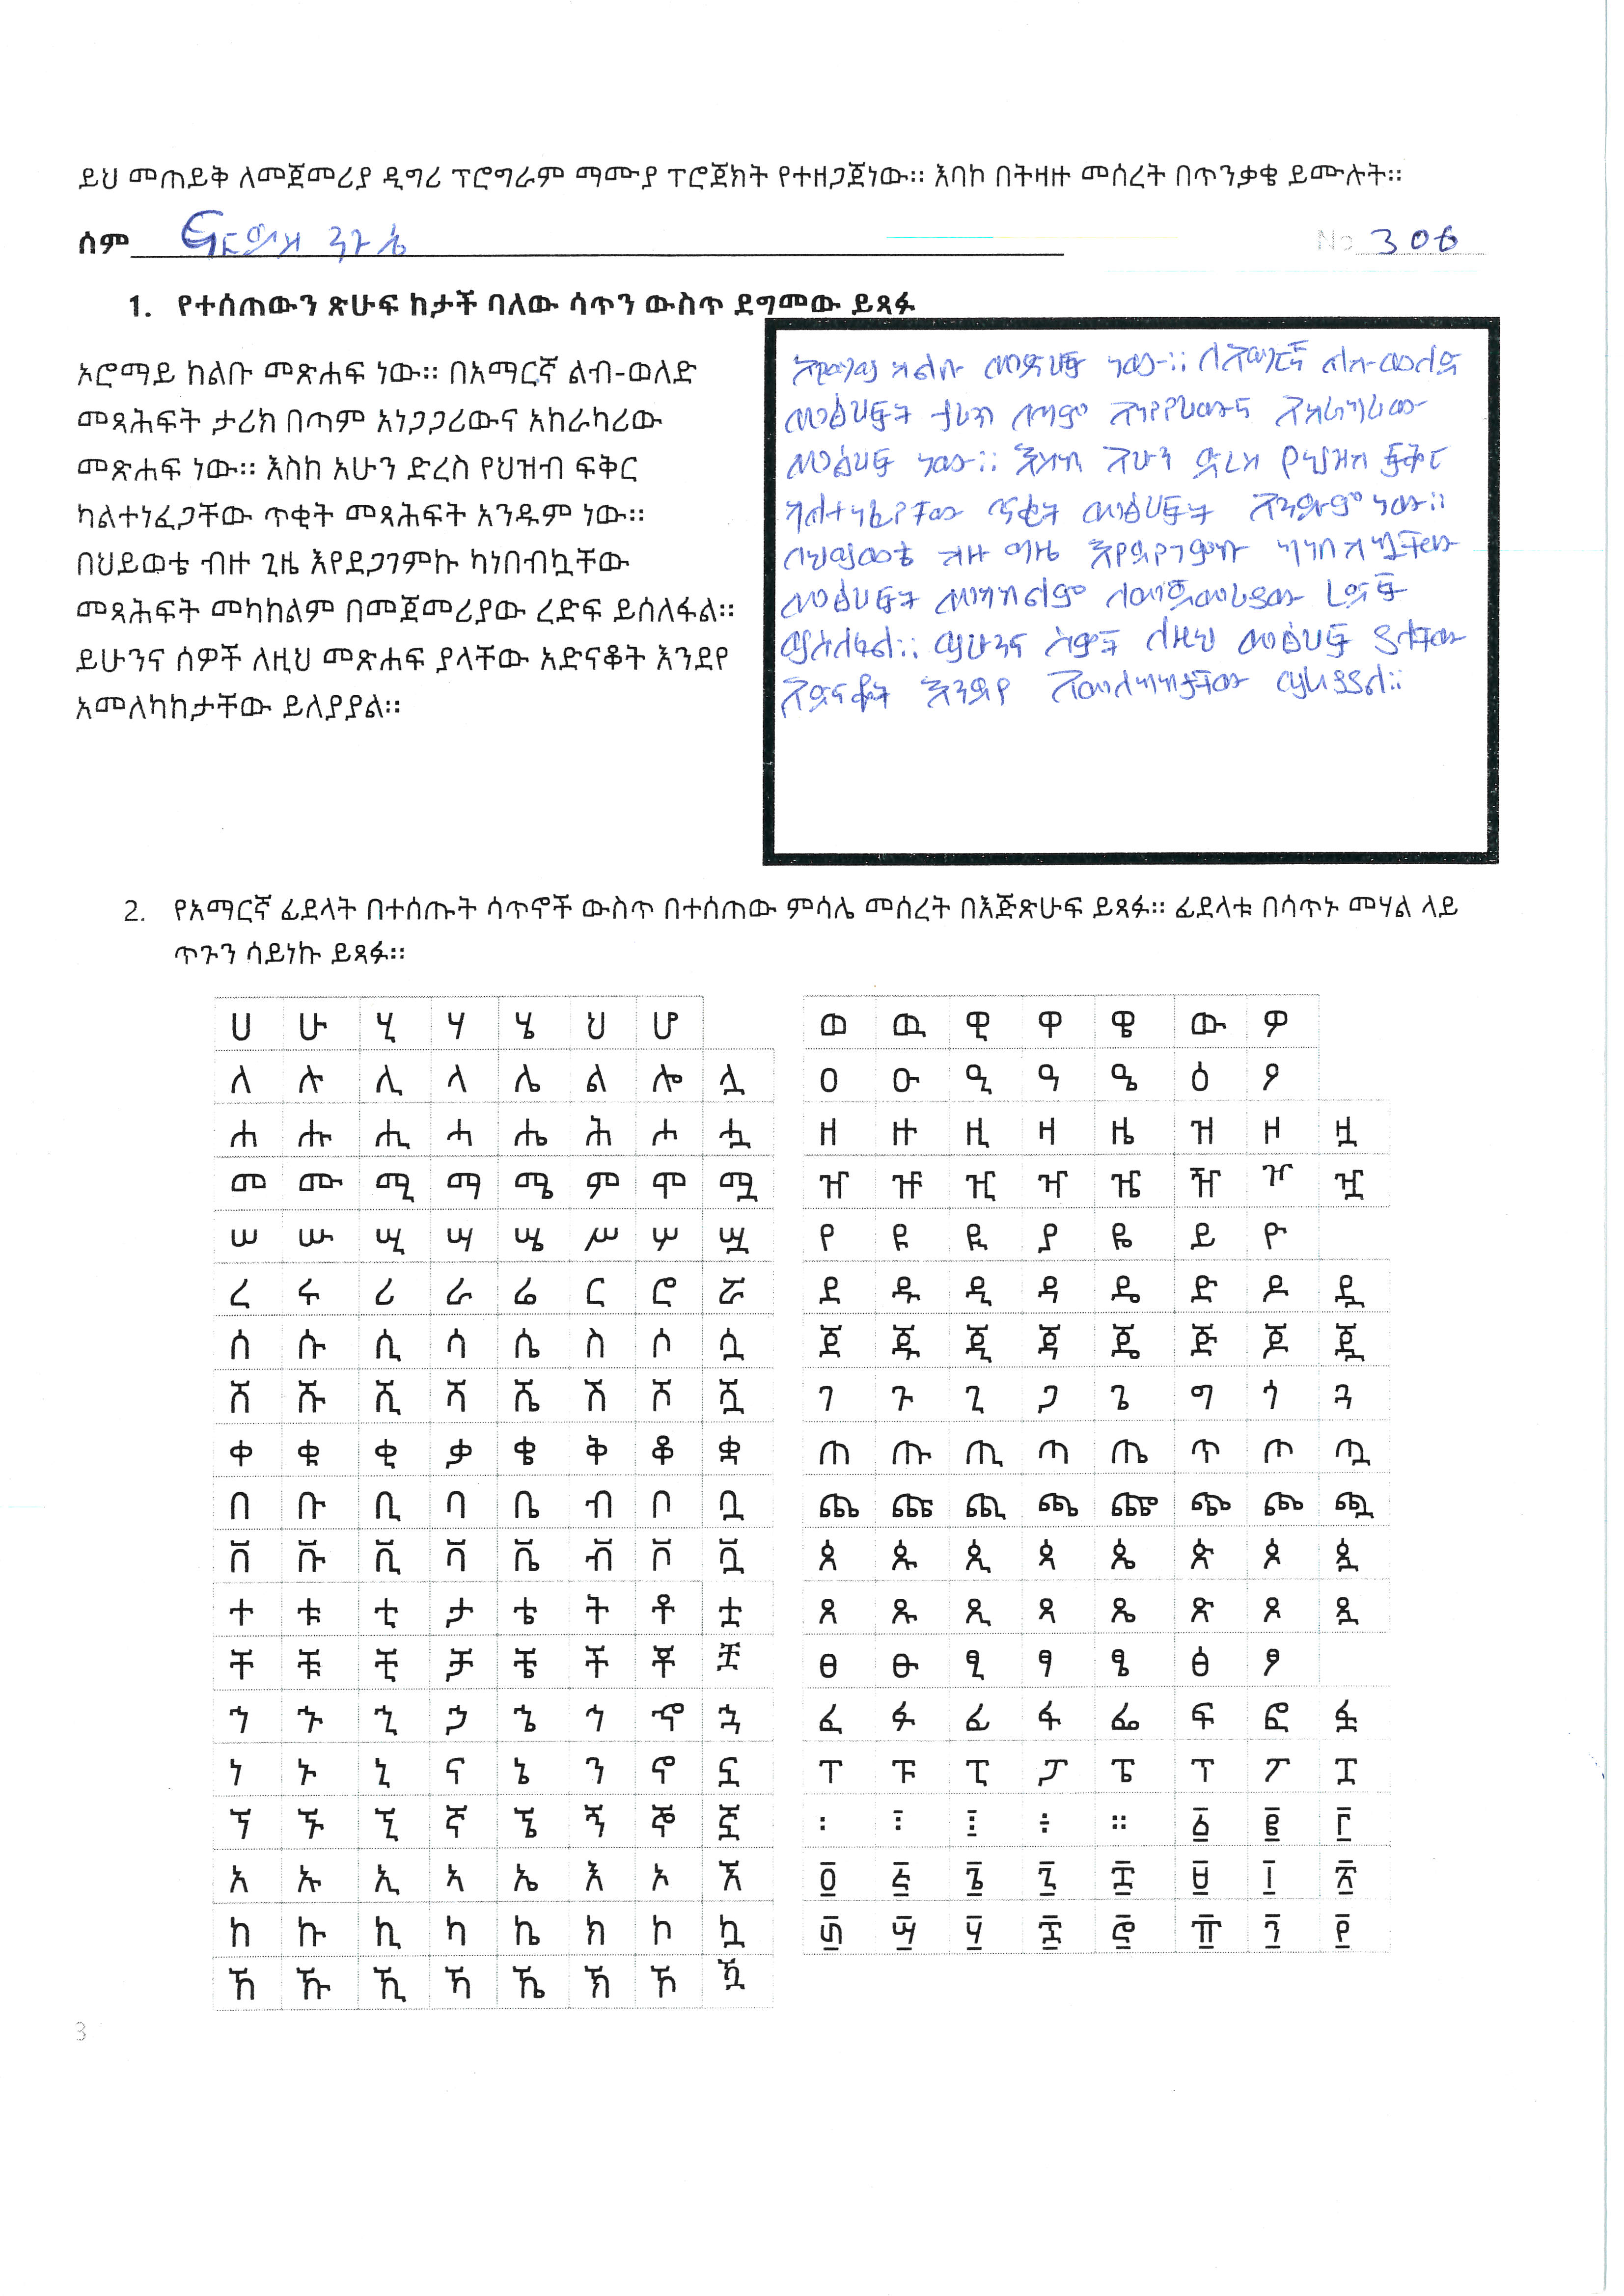 ይህ መጠይቅ ለመጀመሪያ ዲግሪ ፕሮግራም ማሙያ ፕሮጀክት የተዘጋጀነው። እባኮ በትዛዙ መሰረት በጥንቃቄ ይሙሉት።
ሰም
No 306
1. የተሰጠውን ጽሁፍ ከታች ባለው ሳጥን ውስጥ ደግመው ይጻፉ
ኦሮማይ ከልቡ መጽሐፍ ነው። በአማርኛ ልብ-ወለድ
መጻሕፍት ታሪክ በጣም አነጋጋሪውና አከራካሪው
መጽሐፍ ነው። እስከ አሁን ድረስ የህዝብ ፍቅር
ካልተነፈጋቸው ጥቂት መጻሕፍት አንዱም ነው።
በህይወቴ ብዙ ጊዜ እየደጋገምኩ ካነበብኳቸው
መጻሕፍት መካከልም በመጀመሪያው ረድፍ ይሰለፋል።
ይሁንና ሰዎች ለዚህ መጽሐፍ ያላቸው አድናቆት እንደየ
አመለካከታቸው ይለያያል።
ኦሮማይ ከልቡ መጽሀፍ ነው። በአማርኛ ልብ-ወለድ
መፅሀፍት ታሪክ በጣም አነጋጋሪውና አከራካሪው
መፅሀፍ ነው። እስከ አሁን ድረስ የህዝብ ፍቅር
ካልተነፈጋቸው ጥቂት መፅሀፍት አንዱም ነው።
በህይወቴ ብዙ ጊዜ እየደጋገምኩ ካነበብኳቸው
መፅሀፍት መካከልም በመጀመሪያው ረድፍ
ይሰለፋል። ይሁንና ሰዎች ለዚህ መፅሀፍ ያላቸው
አድናቆት እንደየ አመለካከታቸው ይለያያል።
2. የአማርኛ ፊደላት በተሰጡት ሳጥኖች ውስጥ በተሰጠው ምሳሌ መሰረት በእጅጽሁፍ ይጻፉ። ፊደላቱ በሳጥኑ መሃል ላይ
ጥጉን ሳይነኩ ይጻፉ።
ሀ ሁ ሂ ሃ ሄ ህ ሆ
ለ ሉ ሊ ላ ሌ ል ሎ ሏ
ሐ ሑ ሒ ሓ ሔ ሕ ሖ ሗ
መ ሙ ሚ ማ ሜ ም ሞ ሟ
ሠ ሡ ሢ ሣ ሤ ሥ ሦ ሧ
ረ ሩ ሪ ራ ሬ ር ሮ ሯ
ሰ ሱ ሲ ሳ ሴ ስ ሶ ሷ
ሸ ሹ ሺ ሻ ሼ ሽ ሾ ሿ
ቀ ቁ ቂ ቃ ቄ ቅ ቆ ቋ
በ ቡ ቢ ባ ቤ ብ ቦ ቧ
ቨ ቩ ቪ ቫ ቬ ቭ ቮ ቯ
ተ ቱ ቲ ታ ቴ ት ቶ ቷ
ቸ ቹ ቺ ቻ ቼ ች ቾ ቿ
ኀ ኁ ኂ ኃ ኄ ኅ ኆ ኋ
ነ ኑ ኒ ና ኔ ን ኖ ኗ
ኘ ኙ ኚ ኛ ኜ ኝ ኞ ኟ
አ ኡ ኢ ኣ ኤ እ ኦ ኧ
ከ ኩ ኪ ካ ኬ ክ ኮ ኳ
ኸ ኹ ኺ ኻ ኼ ኽ ኾ ዃ
ወ ዉ ዊ ዋ ዌ ው ዎ
ዐ ዑ ዒ ዓ ዔ ዕ ዖ
ዘ ዙ ዚ ዛ ዜ ዝ ዞ ዟ
ዠ ዡ ዢ ዣ ዤ ዥ ዦ ዧ
የ ዩ ዪ ያ ዬ ይ ዮ
ደ ዱ ዲ ዳ ዴ ድ ዶ ዷ
ጀ ጁ ጂ ጃ ጄ ጅ ጆ ጇ
ገ ጉ ጊ ጋ ጌ ግ ጎ ጓ
ጠ ጡ ጢ ጣ ጤ ጥ ጦ ጧ
ጨ ጩ ጪ ጫ ጬ ጭ ጮ ጯ
ጰ ጱ ጲ ጳ ጴ ጵ ጶ ጷ
ጸ ጹ ጺ ጻ ጼ ጽ ጾ ጿ
ፀ ፁ ፂ ፃ ፄ ፅ ፆ
ፈ ፉ ፊ ፋ ፌ ፍ ፎ ፏ
ፐ ፑ ፒ ፓ ፔ ፕ ፖ ፗ
፡ ፤ ፥ ÷ ። ፩ ፪ ፫
፬ ፭ ፮ ፯ ፰ ፱ ፲ ፳
፴ ፵ ፶ ፷ ፸ ፹ ፺ ፻
3